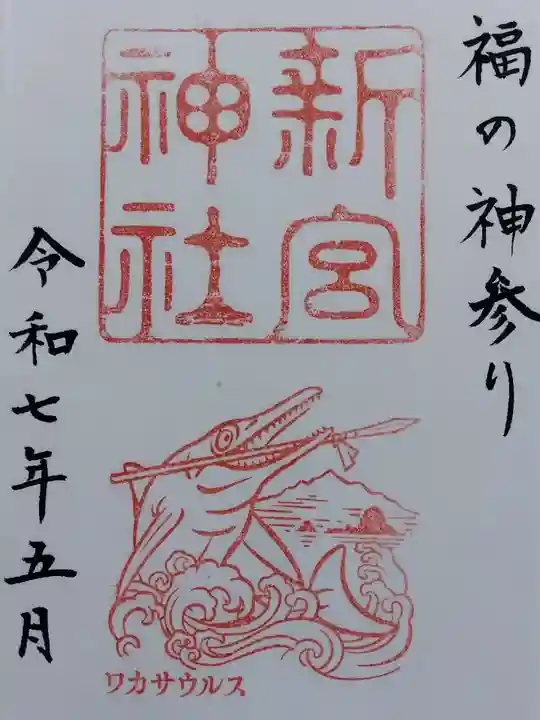 福の神参り
新宮
神社
令和七年五月
ワカサウルス